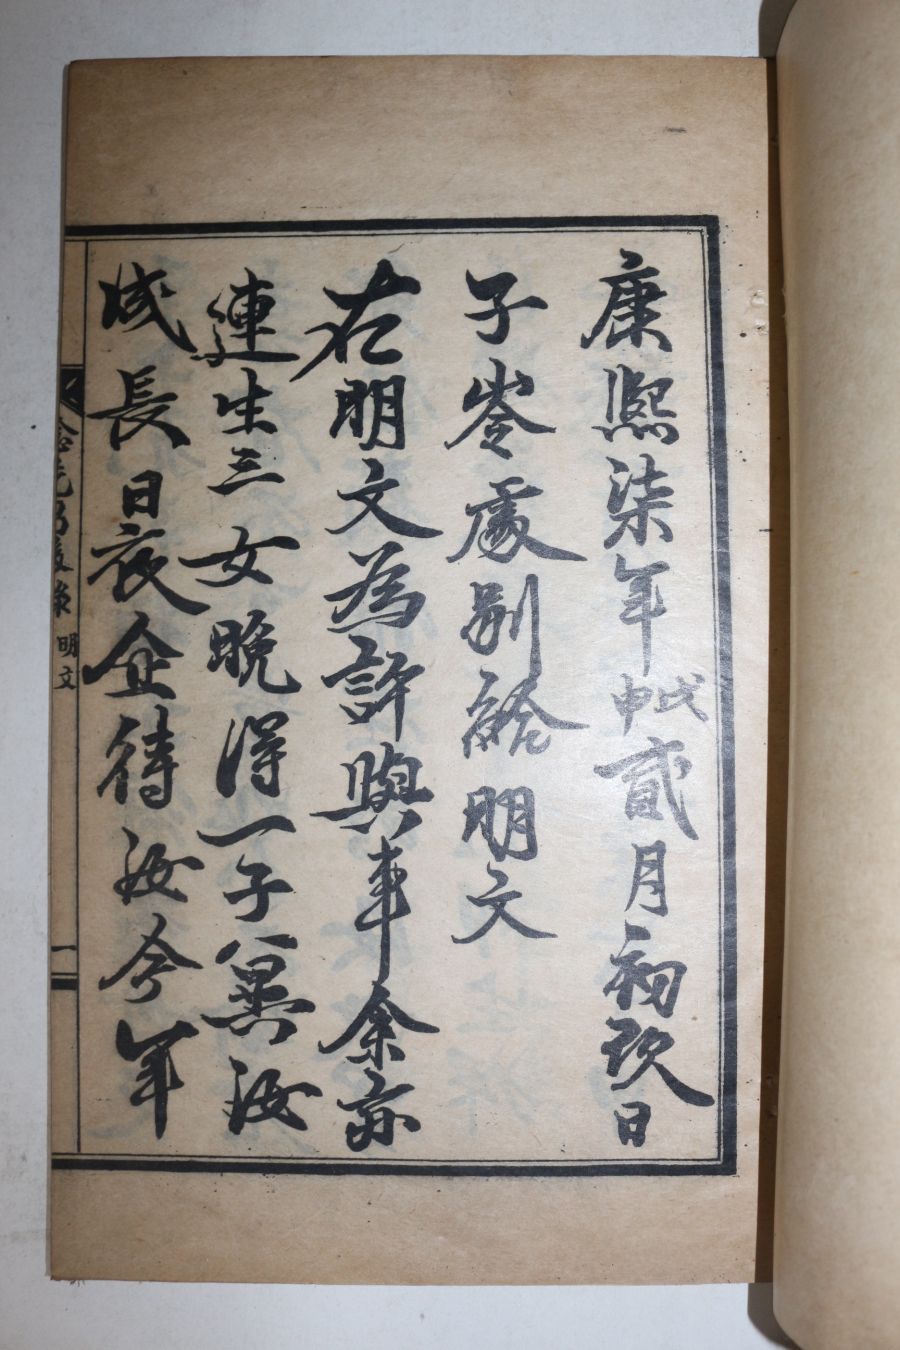 康熙柒年戊申貳月初玖日
子岺處別給明文
右明文為許與事余亦
連生三女晩得一子冀汝
成長日夜企待汝今年
明文
一